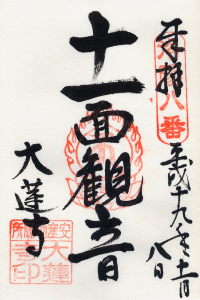 奉拝
八番
平成十九年十一月
八日
十一面観音
大蓮寺
大蓮
寺印